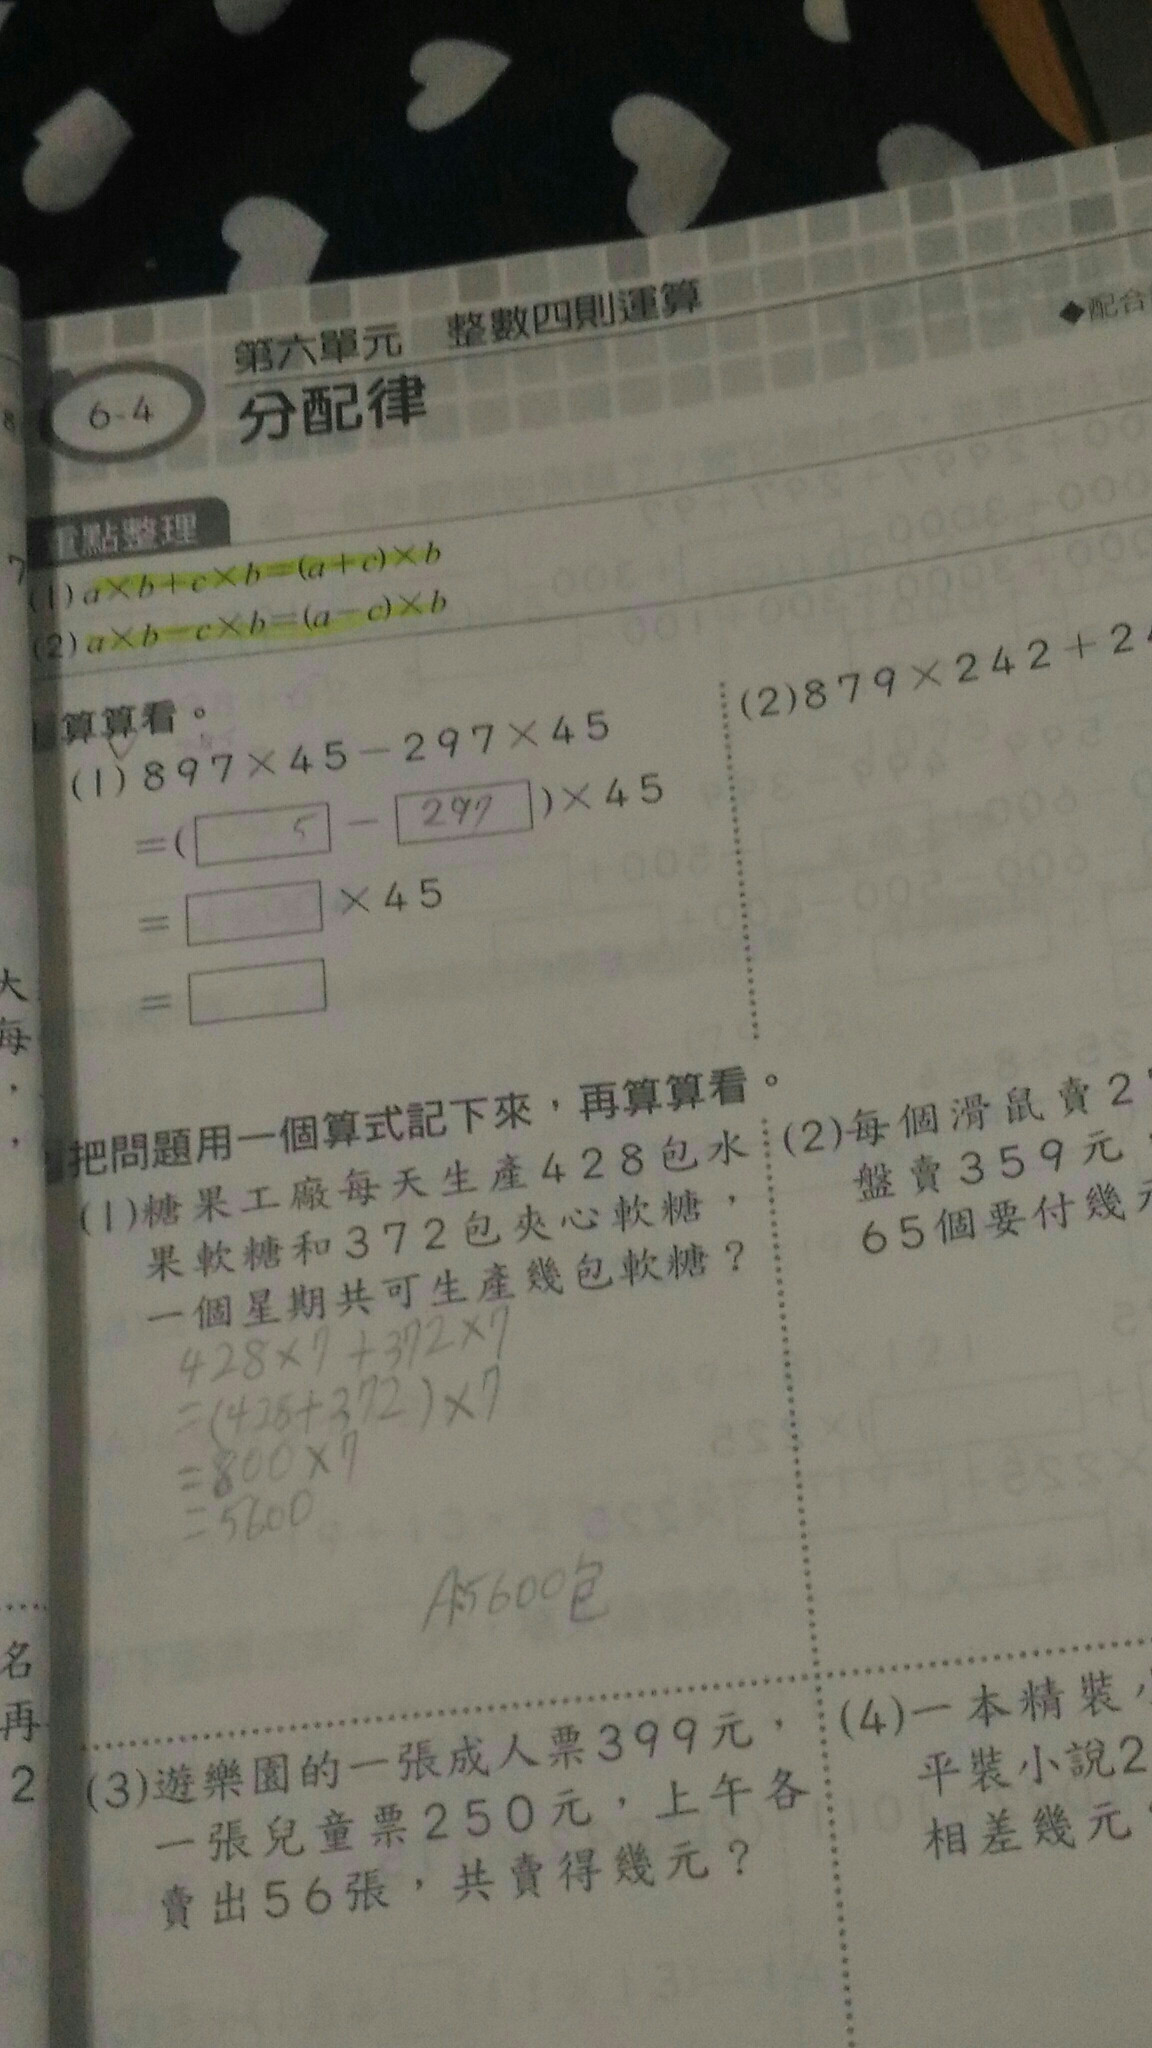 第六單元 整數四則運算
◆配合
6-4
分配律
重點整理
(1) a×b+c×b=(a+c)×b
(2) a×b-c×b=(a-c)×b
算算看。
(1) 897×45-297×45
=( 5 - 297 )×45
= ×45
=
(2) 879×242+24
把問題用一個算式記下來,再算算看。
(1)糖果工廠每天生產428包水
果軟糖和372包夾心軟糖,
一個星期共可生產幾包軟糖?
428×7+372×7
=(428+372)×7
=800×7
=5600
A:5600包
(2)每個滑鼠賣2
盤賣359元
65個要付幾元
(3)遊樂園的一張成人票399元,
一張兒童票250元,上午各
賣出56張,共賣得幾元?
(4)一本精裝小
平裝小說2
相差幾元?
大
每
,
,
名
再
2
8
7